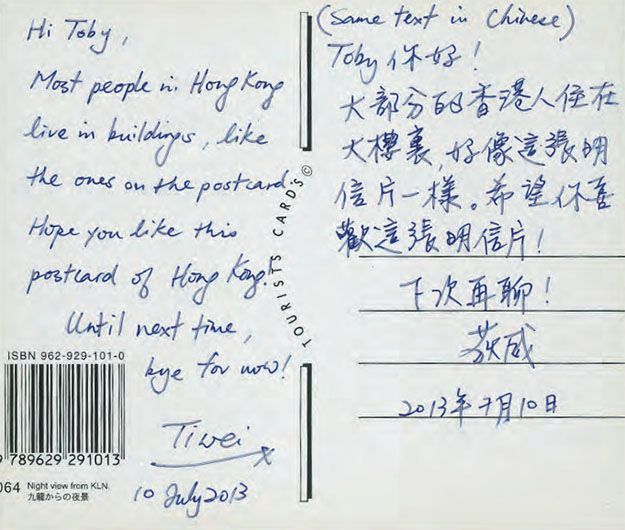 Hi Toby,
Most people in Hong Kong
live in buildings, like
the ones on the postcard.
Hope you like this
postcard of Hong Kong.
Until next time,
bye for now!
Tiwei
x
10 July 2013
ISBN 962-929-101-0
9 789629 291013
064 Night view from KLN.
九龍からの夜景
TOURISTS CARDS ©
(Same text in Chinese)
Toby 你好!
大部分的香港人住在
大樓裏,好像這張明
信片一樣。希望你喜
歡這張明信片!
下次再聊!
荻威
2013年7月10日